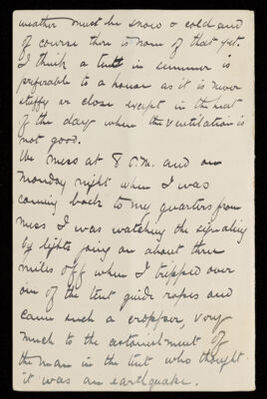 weather must be snow & cold and
of course there is none of that yet.
I think a tent in summer is
preferable to a house as it is never
stuffy or close except in the heat
of the day when the ventilation is
not good.
We mess at 8 P.M. and on
Monday night when I was
coming back to my quarters from
mess I was watching the signalling
by lights going on about three
miles off when I tripped over
one of the tent guide ropes and
came such a cropper, very
much to the astonishment of
the man in the tent who thought
it was an earthquake.